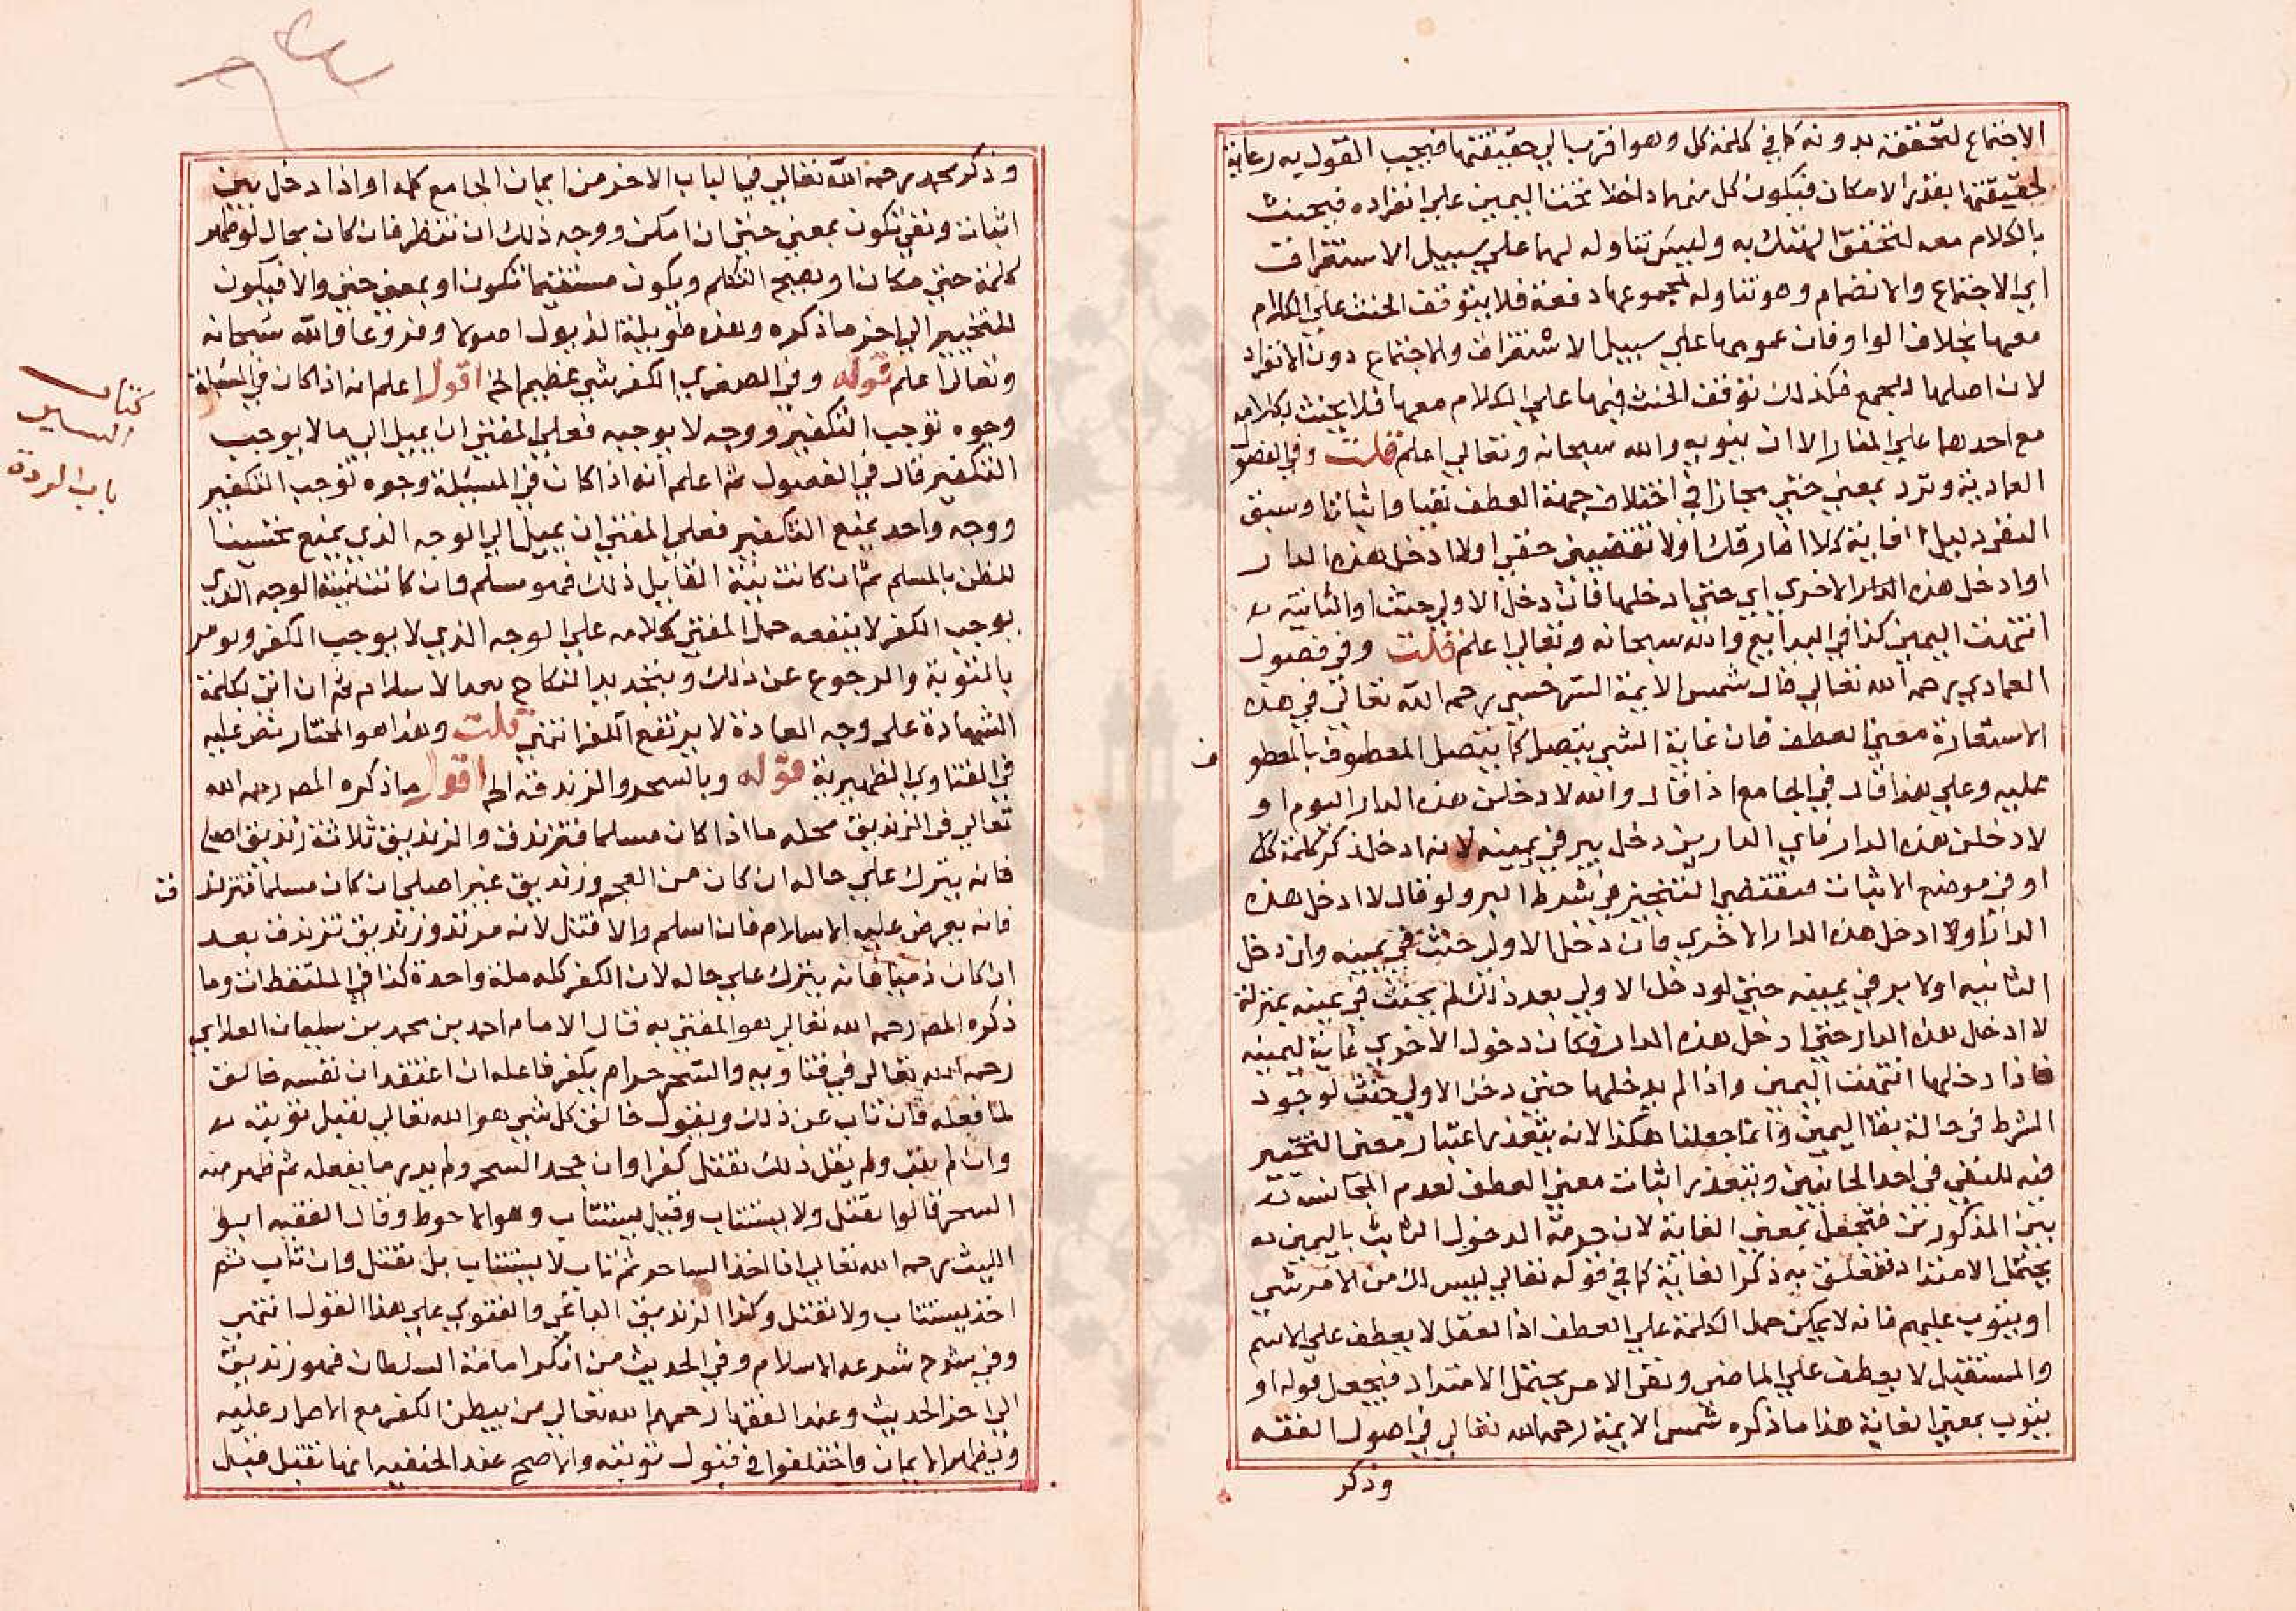 الاجتماع لتحققه بدونه كما في كلمة كل وهو اقرب الي حقيقتها فيجب القول به رعاية
لحقيقتها بقدر الامكان فيكون كل منهما داخلا تحت اليمين علي انفراده فيحنث
بالكلام معه لتحقق الهتك به وليس تناوله لهما علي سبيل الاستغراق
اي الاجتماع والانضمام وهو تناوله لمجموعهما دفعة فلا يتوقف الحنث علي الكلام
معهما بخلاف الواو فان عمومها علي سبيل الاستغراق والاجتماع دون الانفراد
لان اصلها للجمع فلذلك توقف الحنث فيها علي الكلام معهما فلا يحنث بكلامه
مع احدهما علي المختار الا ان ينويه والله سبحانه وتعالي اعلم قلت وفي الفصول
العمادية وترد بمعني حتي مجازا في اختلاف جهة العطف نفيا واثباتا وسبق
النفي دليل الغاية كلا افارقك او تقضيني حقي او لا ادخل هذه الدار
او ادخل هذه الدار الاخري اي حتي ادخلها فان دخل الاولي حنث او الثانية
انتهت اليمين كذا في البدايع والله سبحانه وتعالي اعلم قلت وفي فصول
العمادي رحمه الله تعالي قال شمس الايمة السرخسي رحمه الله تعالي في هذه
الاستعارة معني العطف فان غاية الشي يتصل كما يتصل المعطوف بالمعطو
ف
عليه وعلي هذا قال في الجامع اذا قال والله لادخلن هذه الدار اليوم او
لادخلن هذه الدار فاي الدارين دخل بر في يمينه لانه ادخل ذكر كلمة
او في موضع الاثبات فيقتضي التخيير في شرط البر ولو قال لا ادخل هذه
الدار او لا ادخل هذه الدار الاخري فان دخل الاولي حنث في يمينه وان دخل
الثانيه اولا بر في يمينه حتي لو دخل الاولي بعد ذلك لم يحنث في يمينه بمنزلة
لا ادخل هذه الدار حتي ادخل هذه الدار فكان دخول الاخري غاية ليمينه
فاذا دخلها انتهت اليمين واذا لم يدخلها حتي دخل الاولي حنث لوجود
الشرط في حالة بقا اليمين وانما جعلنا هكذا لانه يتعذر اعتبار معني التخيير
فيه للنفي في احد الجانبين ويتعذر اثبات معني العطف لعدم المجانسة
بين المذكورين فتجعل بمعني الغاية لان حرمة الدخول الثابت باليمين
يحتمل الامتداد فتعلق به ذكر الغاية كما في قوله تعالي ليس لك من الامر شي
او يتوب عليهم فانه لا يمكن حمل الكلمة علي العطف اذ الفعل لا يعطف علي الاسم
والمستقبل لا يعطف علي الماضي ونفي الامر يحتمل الامتداد فيجعل قوله او
يتوب بمعني الغاية هذا ما ذكره شمس الايمة رحمه الله تعالي في اصول الفقه
وذكر
وذكر محمد رحمه الله تعالي في الباب الاخر من ايمان الجامع كلمة او اذا دخل بين
اثبات ونفي تكون بمعني حتي ان امكن ووجه ذلك ان تنظر فان كان بحال لو ظهر
كلمة حتي مكان او يصح التكلم ويكون مستقيما تكون او بمعني حتي والا فيكون
للتخيير الي اخر ما ذكره وهذه طويلة الذيول اصولا وفروعا والله سبحانه
وتعالي اعلم قوله وفي الصغري الكفر شي عظيم الخ اقول اعلم انه اذا كان في المسئلة
كتاب
السير
باب الردة
وجوه توجب التكفير ووجه لا يوجبه فعلي المفتي ان يميل الي ما لا يوجب
التكفير قال في الفصول ثم اعلم انه اذا كان في المسئلة وجوه توجب التكفير
ووجه واحد يمنع التكفير فعلي المفتي ان يميل الي الوجه الذي يمنع تحسينا
للظن بالمسلم ثم ان كانت نية القايل ذلك فهو مسلم وان كانت نيته الوجه الذي
يوجب الكفر لا ينفعه حمل المفتي كلامه علي الوجه الذي لا يوجب الكفر ويومر
بالتوبة والرجوع عن ذلك وبتجديد النكاح بعد الاسلام ثم ان اتي بكلمة
الشهادة علي وجه العادة لا يرتفع الكفر انتهي قلت وهذا هو المختار نص عليه
في الفتاوي الظهيرية قوله وبالسحر والزندقة الخ اقول ما ذكره المصر رحمه الله
تعالي في الزنديق محله ما اذا كان مسلما فتزندق والزنديق ثلاثة زنديق اصلي
فانه يترك علي حاله ان كان من العجم وزنديق غير اصلي ان كان مسلما فتزند
ق
فانه يعرض عليه الاسلام فان اسلم والا قتل لانه مرتد وزنديق تزندق بعد
ان كان ذميا فانه يترك علي حاله لان الكفر كله ملة واحدة كذا في الملتقطات وما
ذكره المصر رحمه الله تعالي هو المفتي به قال الامام احمد بن محمد بن سليمان
رحمه الله تعالي في فتاويه والسحر حرام يكفر فاعله ان اعتقد ان نفسه خالق
لما فعله فان تاب عن ذلك ويقول خالق كل شي هو الله تعالي يقبل توبته
وان لم يتب ولم يقل ذلك يقتل كفرا وان جحد السحر ولم يدر ما يفعله ثم ظهر منه
السحر قالوا يقتل ولا يستتاب وقيل يستتاب وهو الاحوط وقال الفقيه ابو
الليث رحمه الله تعالي اذا اخذ الساحر ثم تاب لا يستتاب بل يقتل وان تاب ثم
اخذ يستتاب ولا يقتل وكذا الزنديق الداعي والفتوي علي هذا القول انتهي
وفي شرح شرعة الاسلام وفي الحديث من انكر امامة السلطان فهو زنديق
الي اخر الحديث وعند الفقها رحمهم الله تعالي من يبطن الكفر مع الاصرار عليه
ويظهر الايمان واختلفوا في قبول توبته والاصح عند الحنفية انها تقبل قبل